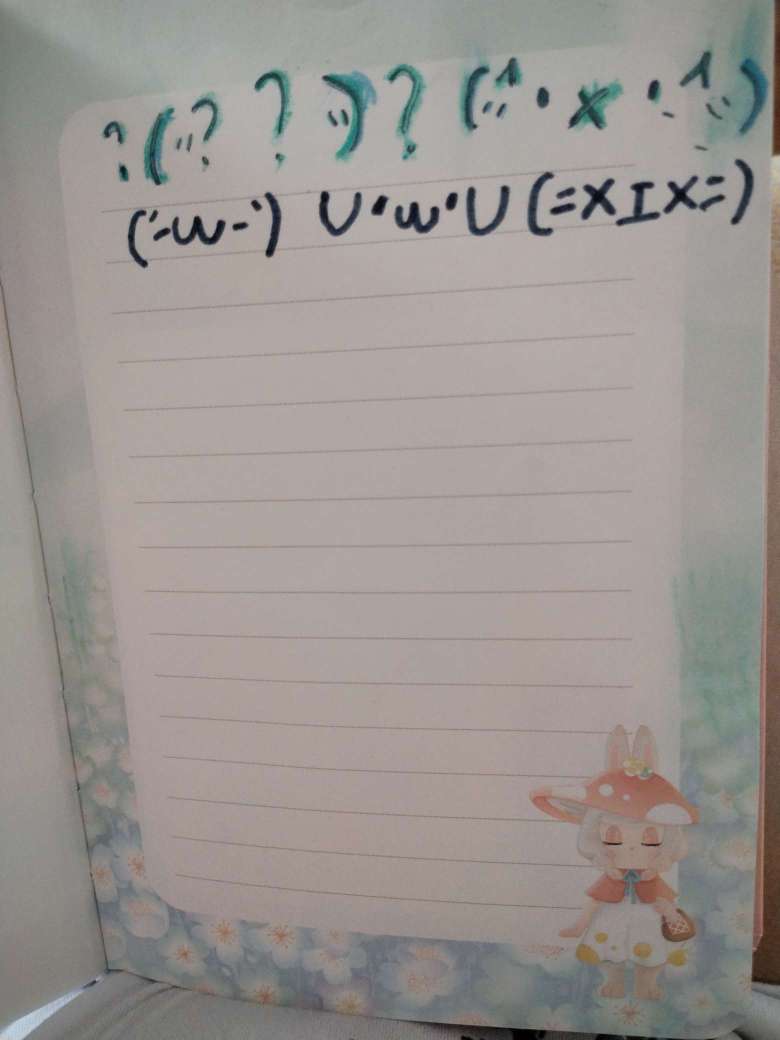 ?(〃? ? 〃)? (〃^・x・^〃)
('-ω-') U・ω・U (=xIx=)